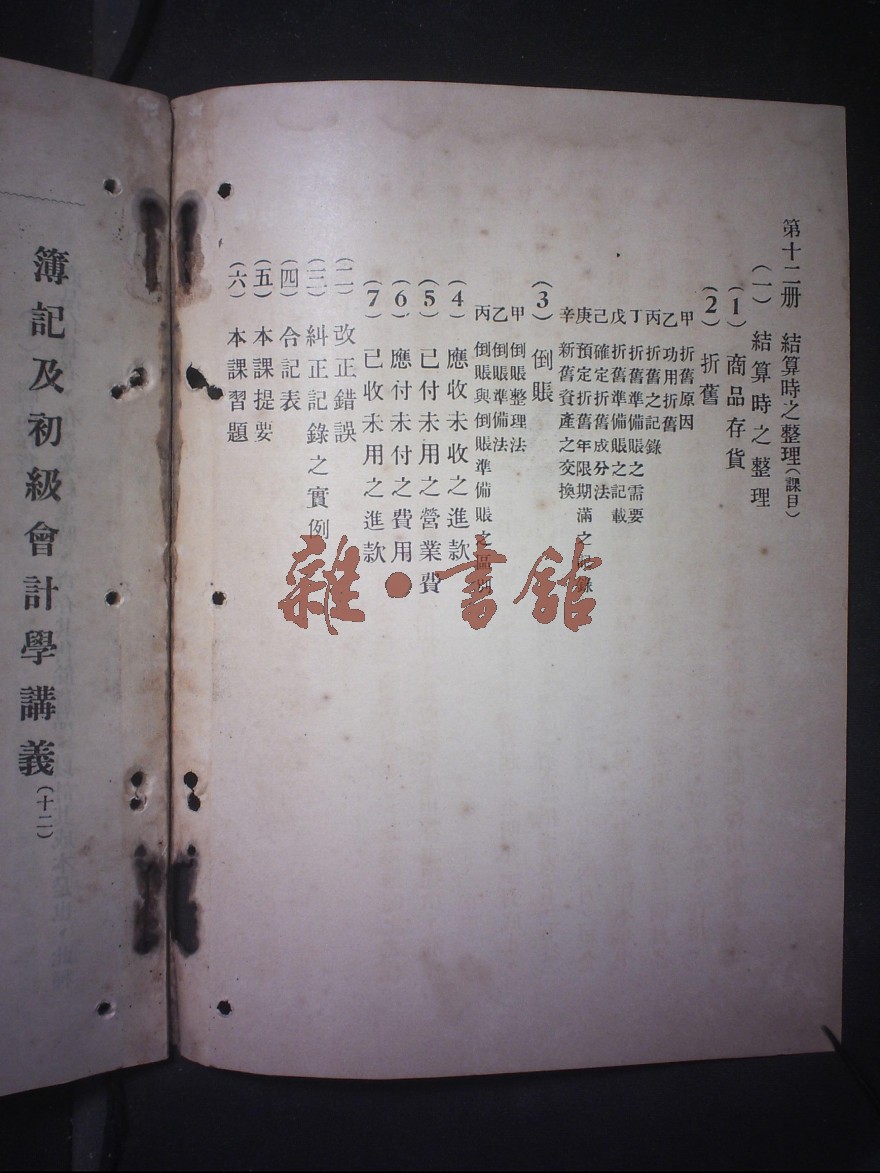 第十二册 結算時之整理(課目)
(一) 結算時之整理
(1) 商品存貨
(2) 折舊
甲 折舊原因
乙 功用折舊
丙 折舊之記錄
丁 折舊準備賬之需要
戊 折舊準備賬之記載
己 確定折舊成分法
庚 預定折舊年限期滿之記錄
辛 新舊資產之交換
(3) 倒賬
甲 倒賬整理法
乙 倒賬準備法
丙 倒賬與倒賬準備賬之區別
(4) 應收未收之進款
(5) 已付未用之營業費
(6) 應付未付之費用
(7) 已收未用之進款
(二) 改正錯誤
(三) 糾正記錄之實例
(四) 合記表
(五) 本課提要
(六) 本課習題
簿記及初級會計學講義(十二)
雜·書館